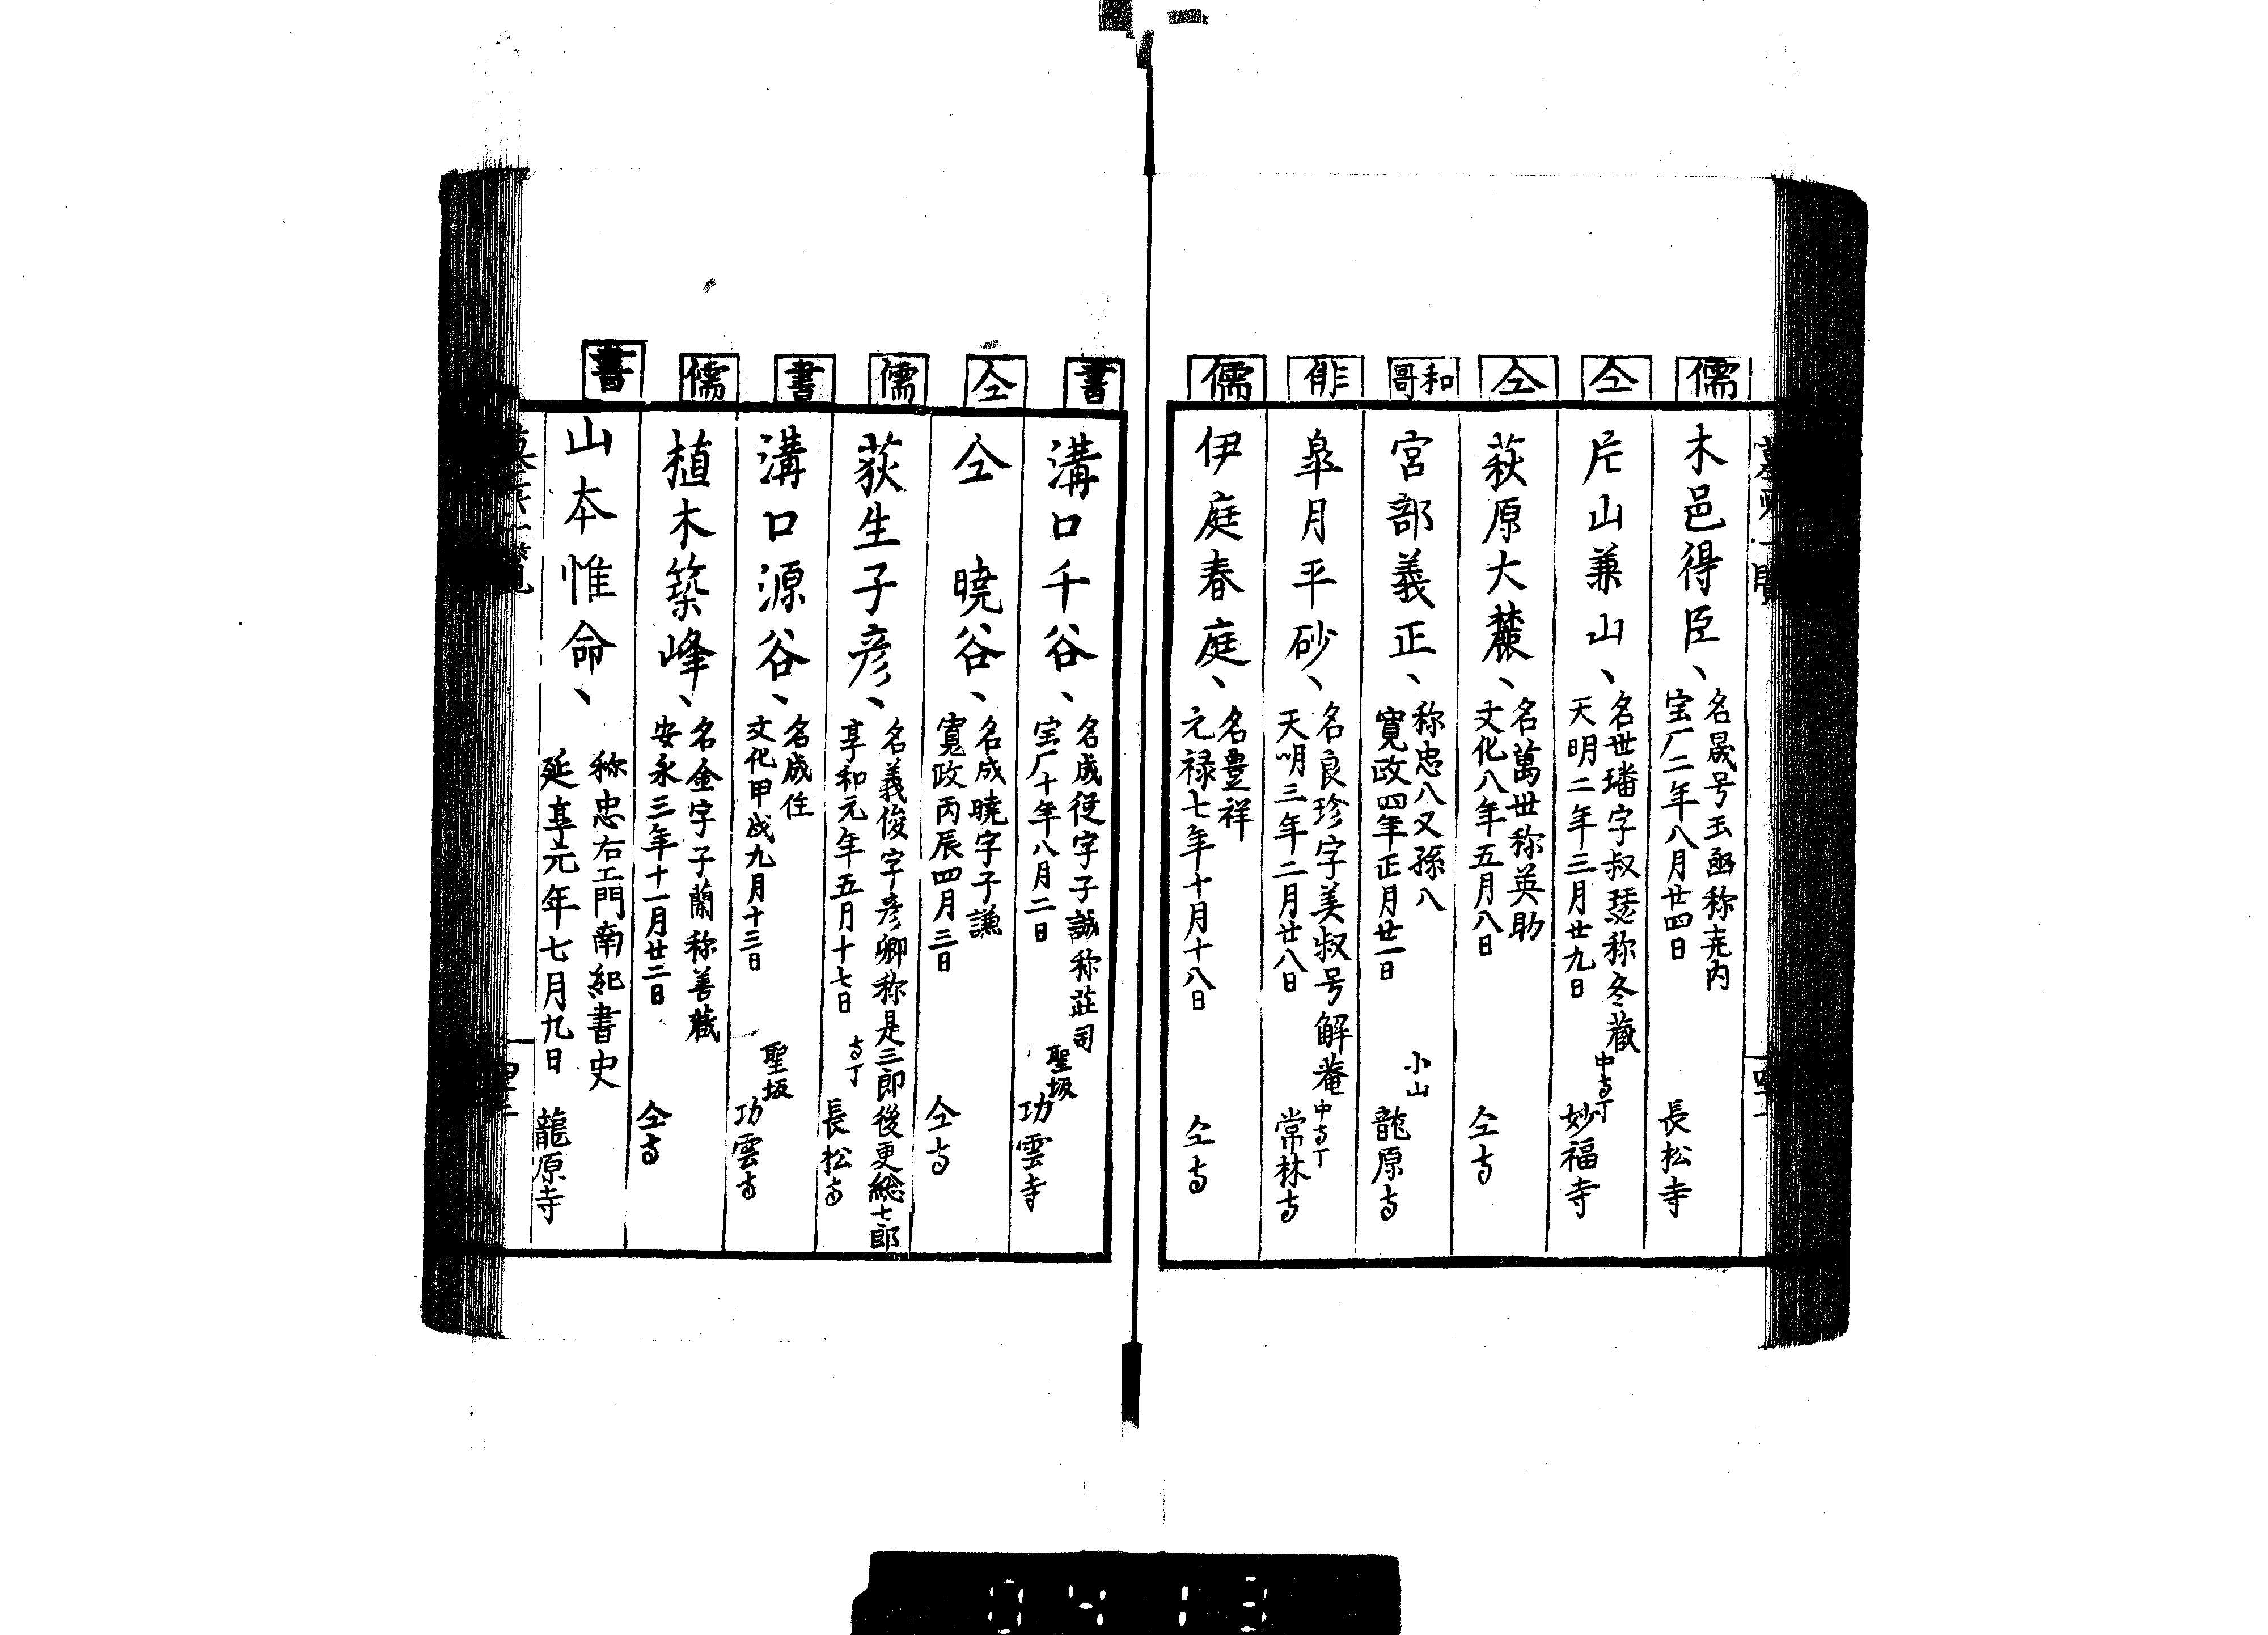 儒
木邑得臣、
名晟号玉凾称尭内
宝厂二年八月廿四日
長松寺
仝
片山兼山、
名世璠字叔瑟称冬蔵
天明二年三月廿九日
中寺丁
妙福寺
仝
萩原大麓、
名萬世称英助
文化八年五月八日
仝寺
和哥
宮部義正、
称忠八又孫八
寛政四年正月廿一日
小山
龍原寺
俳
皐月平砂、
名良珍字美叔号解菴
天明三年二月廿八日
中寺丁
常林寺
儒
伊庭春庭、
名豊祥
元禄七年十月十八日
仝寺
書
溝口千谷、
名成従字子誠称莊司
宝厂十年八月二日
聖坂
功雲寺
仝
仝 曉谷、
名成曉字子謙
寛政丙辰四月三日
仝寺
儒
荻生子彦、
名義俊字彦卿称是三郎後更総七郎
享和元年五月十七日
寺丁
長松寺
書
溝口源谷、
名成住
文化甲戌九月十三日
聖坂
功雲寺
儒
植木築峰、
名金字子蘭称善蔵
安永三年十一月廿二日
仝寺
書
山本惟命、
称忠右エ門南紀書史
延享元年七月九日
龍原寺
0413